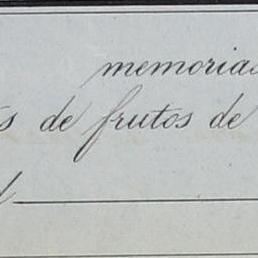 memorias
s de frutos de